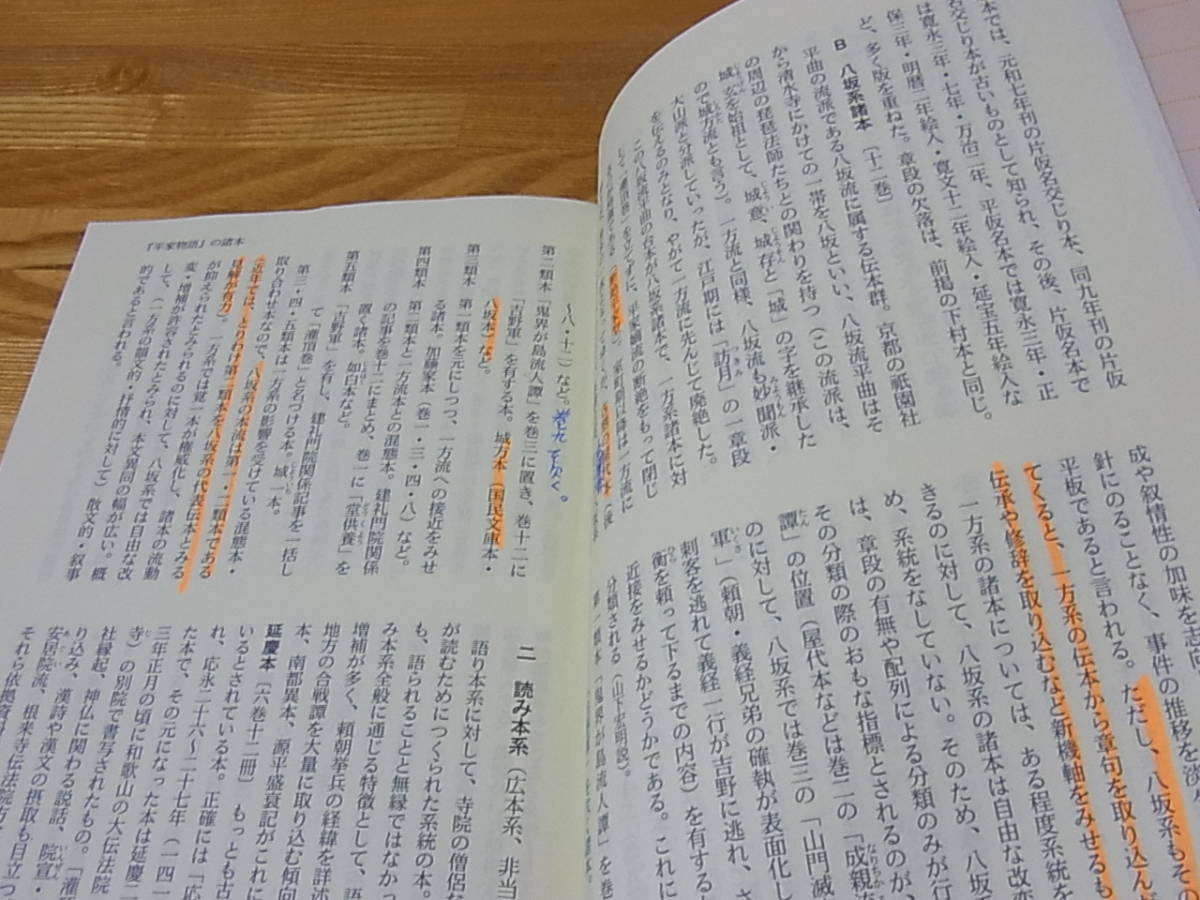 本では、元和七年刊の片仮名交じり本、同九年刊の片仮
名交じり本が古いものとして知られ、その後、片仮名本で
は寛永三年・七年・万治二年、平仮名本では寛永三年・正
保三年・明暦二年絵入・寛文十二年絵入・延宝五年絵入な
ど、多く版を重ねた。章段の欠落は、前掲の下村本と同じ。
B 八坂系諸本［十二巻］
平曲の流派である八坂流に属する伝本群。京都の祇園社
から清水寺にかけての一帯を八坂といい、八坂流平曲はそ
の周辺の琵琶法師たちとの関わりを持つ（この流派は、
城玄を始祖として、城意、城存と「城」の字を継承した
ので城方流とも言う）。一方流と同様、八坂流も妙聞派・
大山派と分派していったが、江戸期には「訪月」の一章段
を伝えるのみとなり、やがて一方流に先んじて廃絶した。
この八坂流平曲の台本が八坂系諸本で、一方系諸本に対
して、「灌頂巻」を立てずに、平家嫡流の断絶をもって閉じ
室町期以降は一方流に
成や叙情性の加味を志向
針にのることなく、事件の推移を淡
平板であると言われる。ただし、八坂系もその
てくると、一方系の伝本から章句を取り込んだ
伝承や修辞を取り込むなど新機軸をみせるも
一方系の諸本については、ある程度系統を
きるのに対して、八坂系の諸本は自由な改変
め、系統をなしていない。そのため、八坂
は、章段の有無や配列による分類のみが行
その分類の際のおもな指標とされるのが、
譚」の位置（屋代本などは巻二の「成親流
のに対して、八坂系では巻三の「山門滅
軍」（頼朝・義経兄弟の確執が表面化し
刺客を逃れて義経一行が吉野に逃れ、さ
衡を頼って下るまでの内容）を有する
近接をみせるかどうかである。これに
分類される（山下宏明説）。
『平家物語』の諸本
〜八・十二）など。
第二類本 「鬼界が島流人譚」を巻三に置き、巻十二に
「吉野軍」を有する本。城方本（国民文庫本・
八坂本）など。
第三類本 第一類本を元にしつつ、一方流への接近をみせ
る諸本。加藤家本（巻一・三・四・八）など。
第四類本 第二類本と一方流本との混態本。建礼門院関係
の記事を巻十二にまとめ、巻一に「堂供養」を
置く諸本。如白本など。
第五類本 「吉野軍」を有し、建礼門院関係記事を一括し
て「灌頂巻」と名づける本。城一本。
第三・四・五類本は一方系の影響を受けている混態本・
取り合わせ本なので、八坂系の本流は第一・二類本である
（近年では、とりわけ第二類本を八坂系の代表伝本とみる
理解が有力）。一方系では覚一本が権威化し、諸本の流動
が抑えられたとみられるのに対して、八坂系では自由な改
変・増補が許容されたとみられ、本文異同の幅が広い。概
して、（一方系の韻文的・抒情的に対して）散文的・叙事
的であると言われる。
二 読み本系（広本系、非当
語り本系に対して、寺院の僧侶な
が読むためにつくられた系統の本。
も、語られることと無縁ではなかっ
み本系全般に通じる特徴として、語
増補が多く、頼朝挙兵の経緯を詳述
地方の合戦譚を大量に取り込む傾向
本、南都異本、源平盛衰記がこれに
延慶本［六巻十二冊］ もっとも古
いるとされている本。正確には「応
れ、応永二十六〜二十七年（一四一
た本で、その元になった本は延慶二
三年正月の頃に和歌山の大伝法院
寺）の別院で書写されたもの。「灌
社縁起、神仏に関わる説話、院宣・
り込み、漢詩や漢文の摂取も目立つ
安居院流、根来寺伝法院方
それら依拠資料